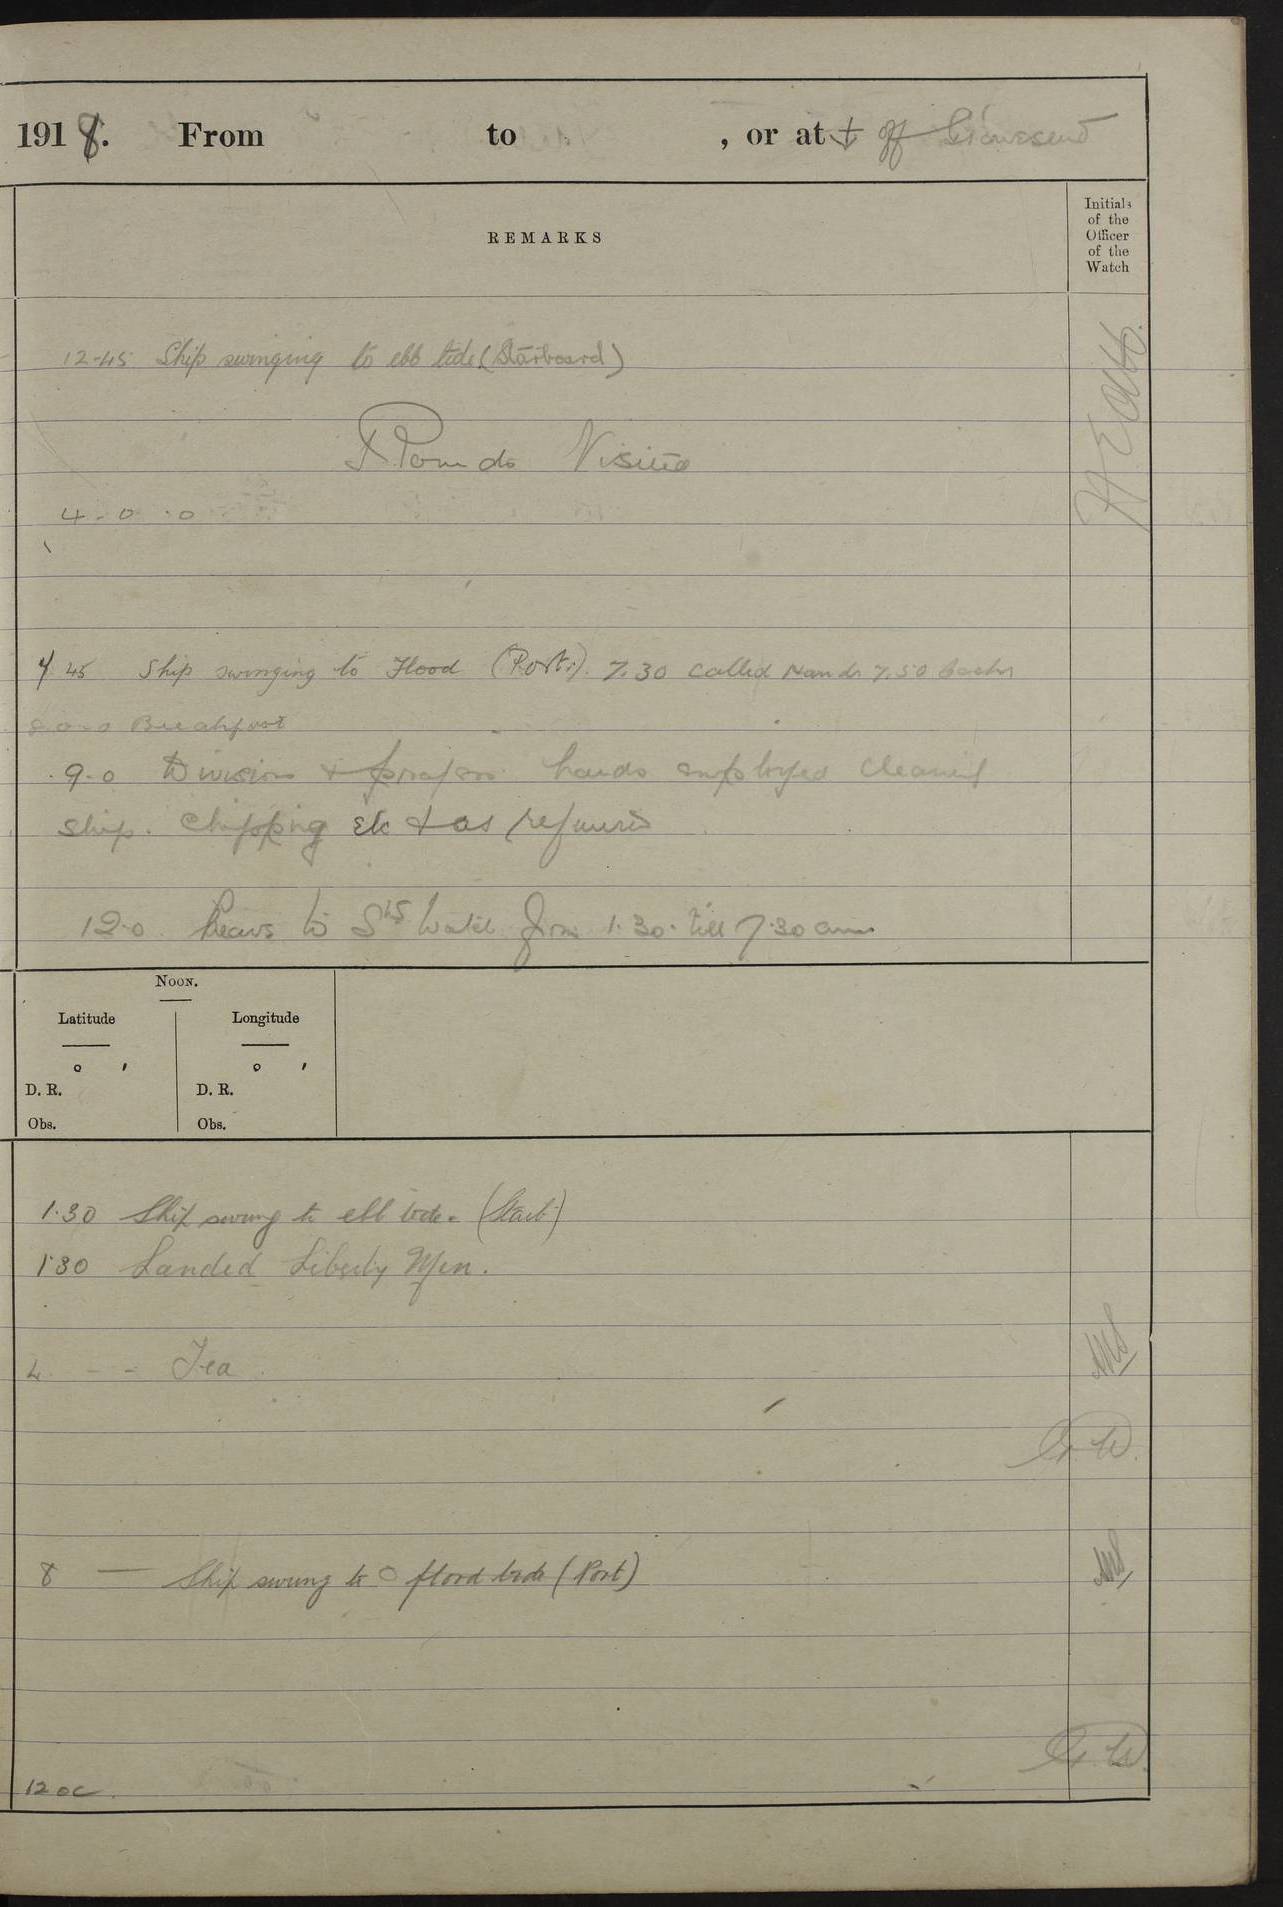 1918. From to , or at ⚓ off Gravesend
REMARKS
Initials
of the
Officer
of the
Watch
12-45 Ship swinging to ebb tide (Starboard)
Rounds Visited
4-0 .0
4.45 Ship swinging to Flood (Port.). 7.30 Called Hands 7.50
8.0.0 Breakfast
9.0 Divisions & prayers hands employed Cleaning
ship. Chipping etc & as required
12.0 to from 1.30. till 7.30 am
NOON.
Latitude Longitude
° ′ ° ′
D. R. D. R.
Obs. Obs.
1.30 Ship swung to ebb tide. (Starb)
1.30 Landed Liberty Men.
4 - - Tea
G. W.
8 — Ship swung to flood tide (Port)
G. W.
12 oc